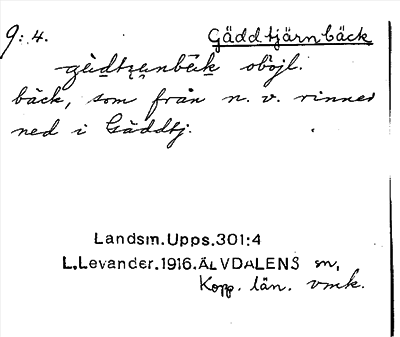 9:4. Gäddtjärnbäck
-gädtzenbäk oböjl.
bäck, som från n. v. rinner
ned i Gäddtj.
Landsm.Upps.301:4
L.Levander.1916.ÄLVDALENS sn,
Kopp. län. vmk.